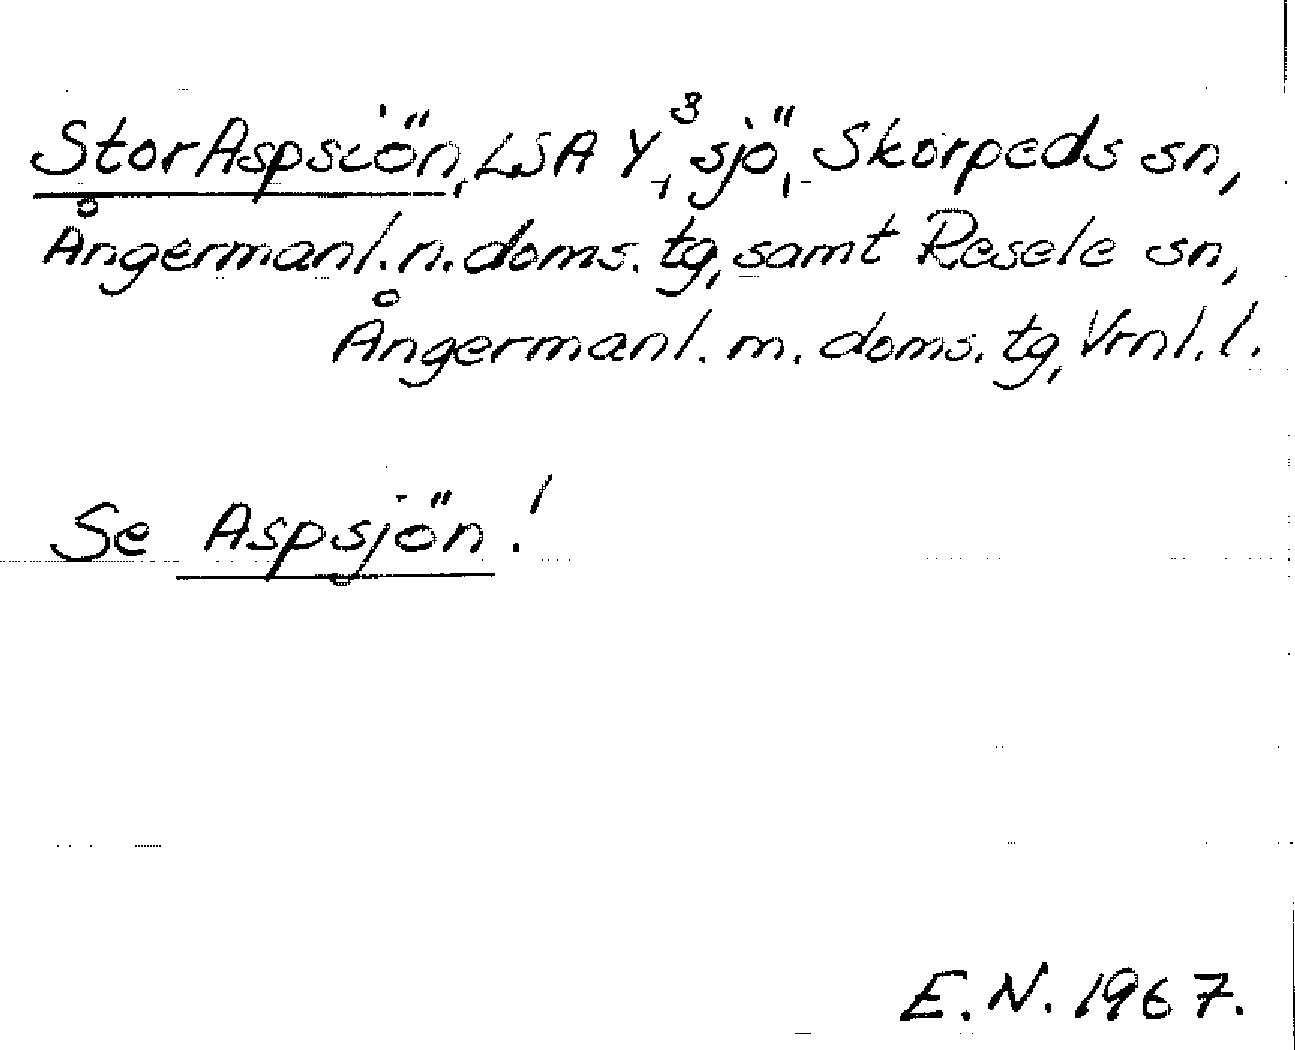 StorAspsjön, LSA Y³, sjö, Skorpeds sn,
Ångermanl. n. doms. tg, samt Resele sn,
Ångermanl. m. doms. tg, Vrnl. l.
Se Aspsjön!
E. N. 1967.